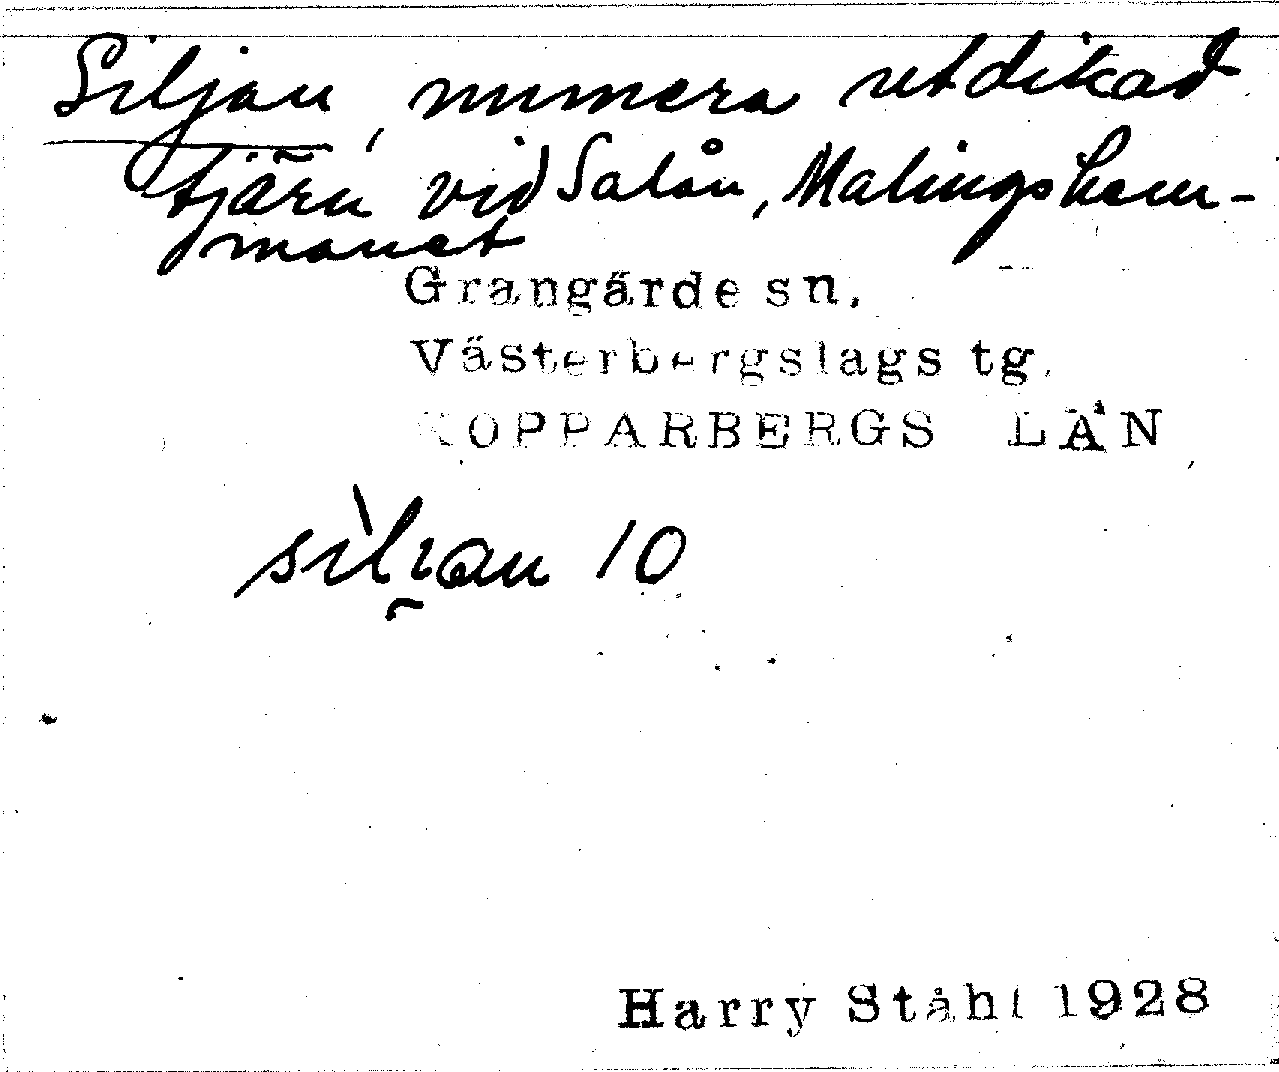 Siljan, numera utdikad
tjärn vid Salån, Malingshem-
manet
Grangärde sn.
Västerbergslags tg.
KOPPARBERGS LÄN
sìli̯an 10
Harry Ståhl 1928